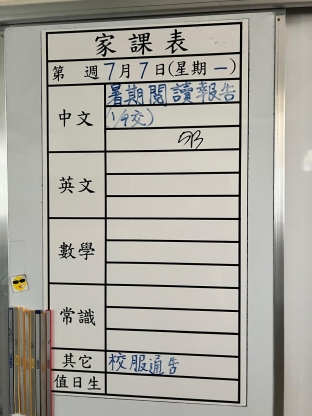 家課表
第 週7月7日(星期一)
中文 暑期閱讀報告
(1/9交)
SB
英文
數學
常識
其它 校服通告
值日生